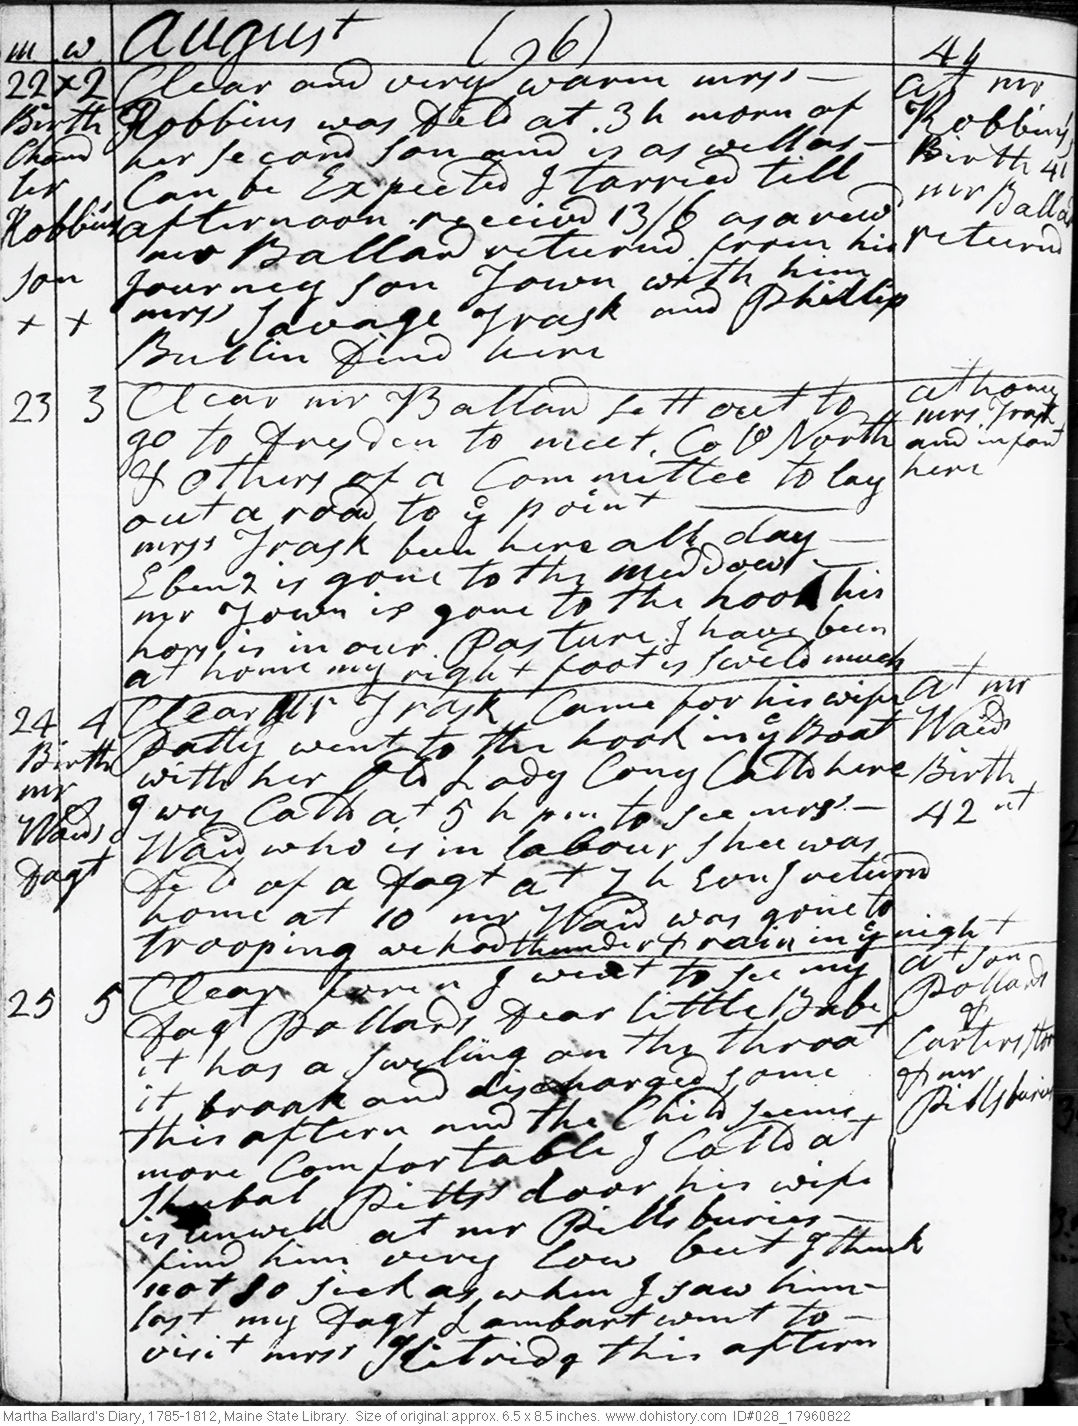 m w August (96) 49
22 x 2 Clear and very warm mrss — at mr
Birth Robbins was Deld at 3 h morn of Robbins
Chand her second son and is as well as — Birth 41
ler Can be Expected I tarried till mr Ballad
Robbins afternoon. receivd 13/6 as a rewd returnd
mr Ballard returnd from his
son Journey son Town with him
x x mrss Savage Trask and Phillip
Bullin dind here
23 3 Clear mr Ballard sett out to at home
go to Dresden to meet Col North mrs Trask
& others of a Committee to lay and infant
out a road to ye point — here
mrss Trask been here all day —
Ebenz is gone to the meddow —
mr Town is gone to the hook his
hors is in our Pasture I have been
at home my right foot is sweld much
24 4 Clear Mr Trask Came for his wife at mr
Birth Patty went to the hook in ye Boat Waids
mr with her Old Lady Cony Calld here Birth
Waids I was Calld at 5 h pm to see mrss — 42 nt
Dagt Waid who is in labour, shee was
Deld of a Dagt at 7 h Evng I returnd
home at 10 mr Waid was gone to
trooping we had thunder & rain in ye night
25 5 Clear foren I went to see my at son
Dagt Pollards Dear little Babe Pollards
it has a sweling on the throat &
it braak and discharged some Carters stor
this aftern and the Child seems & mr
more Comfortable I Calld at Pillsburies
Shubal Pitts's door his wife
is unwell at mr Pillsburies —
find him very low but I think
not so sick as when I saw him —
last my Dagt Lambart went to —
visit mrss Kitridg this aftern
Martha Ballard's Diary, 1785-1812, Maine State Library. Size of original: approx. 6.5 x 8.5 inches. www.dohistory.com ID#028_17960822